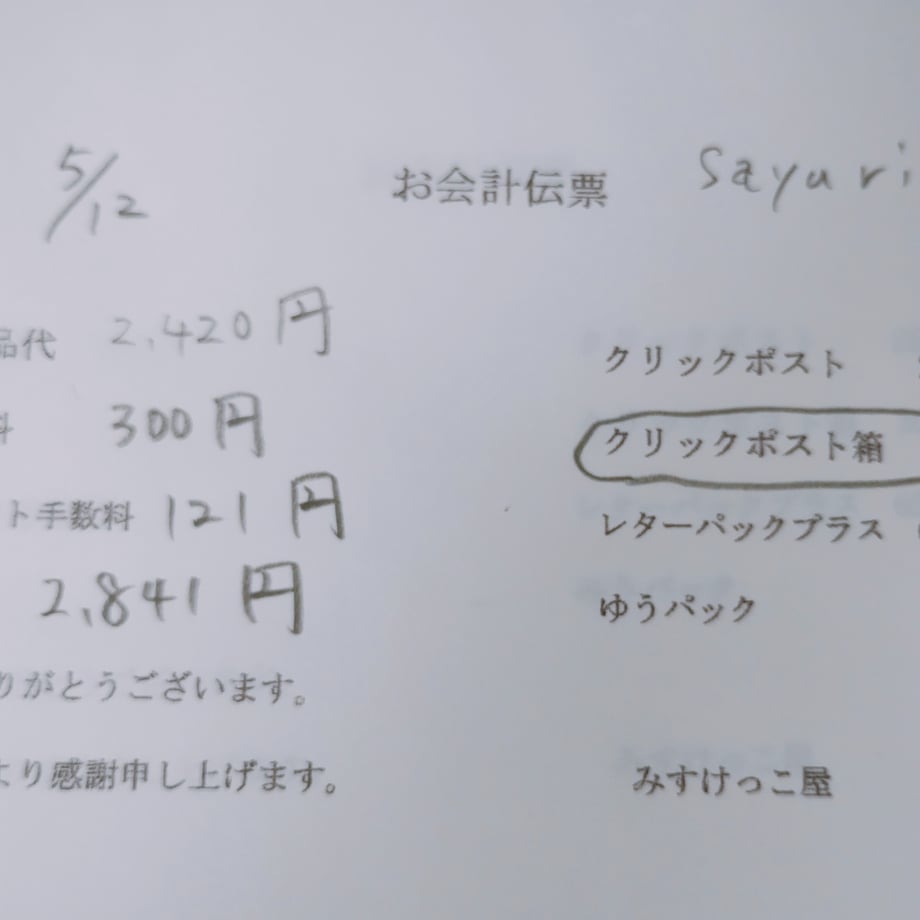 5/12 お会計伝票 Sayuri
品代 2,420円
クリックポスト
料 300円
クリックポスト箱
ト手数料 121円
レターパックプラス
2,841円
ゆうパック
りがとうございます。
より感謝申し上げます。
みすけっこ屋